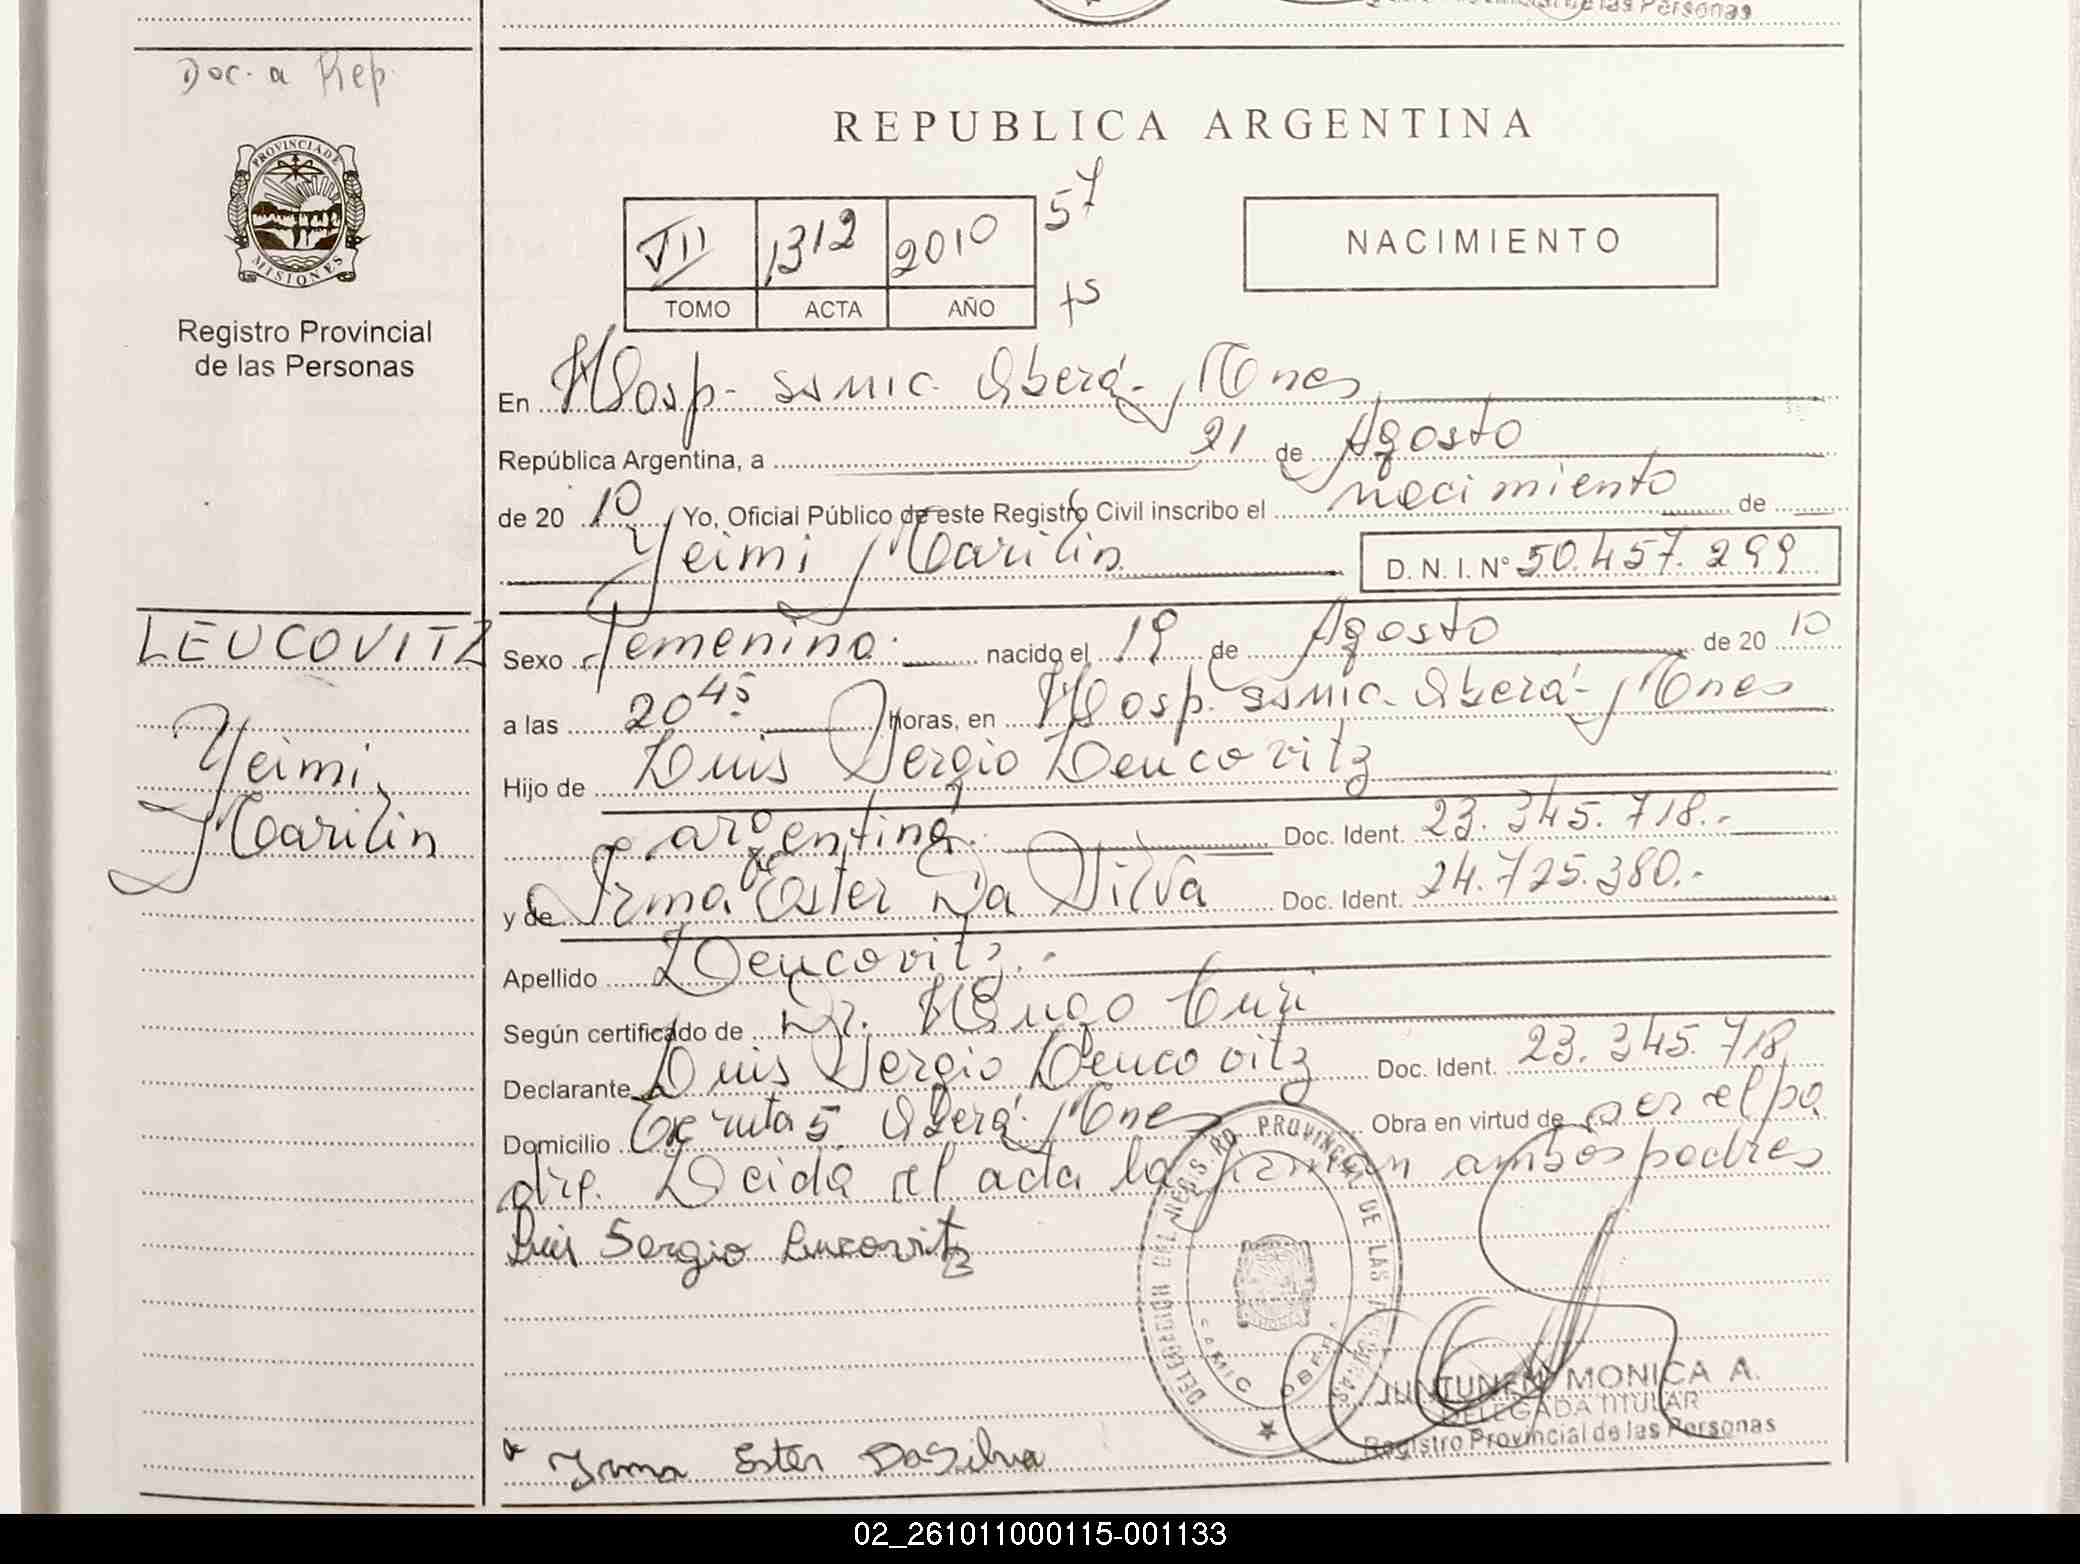 de las Personas
Doc. a Rep.
PROVINCIA DE
MISIONES
Registro Provincial
de las Personas
REPUBLICA ARGENTINA
VII 1312 2010 57
TOMO ACTA AÑO ts
NACIMIENTO
En Hosp. ssmic. Oberá - Mnes
República Argentina, a 21 de Agosto
de 20 10 Yo, Oficial Público de este Registro Civil inscribo el nacimiento de
Yeimi Marilin D. N. I. N° 50.457.299
LEUCOVITZ
Yeimi
Marilin
Sexo femenino. nacido el 19 de Agosto de 20 10
a las 20 45 Horas, en Hosp. ssmic. Oberá - Mnes
Hijo de Luis Sergio Leucovitz
argentina. Doc. Ident. 23.345.718.-
y de Irma Ester Da Silva Doc. Ident. 24.725.380.-
Apellido Leucovitz.-
Según certificado de Dr. Hugo
Declarante Luis Sergio Leucovitz Doc. Ident. 23.345.718
Domicilio ruta 5 Oberá - Mnes Obra en virtud de ser el pa
dre. Leida el acta la firman ambos padres
Luis Sergio Leucovitz
DELEGACION DEL REGISTRO PROVINCIAL DE LAS PERSONAS
SAMIC OBERA
JUNTUNEN MONICA A.
DELEGADA TITULAR
Registro Provincial de las Personas
Irma Ester DaSilva
02_261011000115-001133